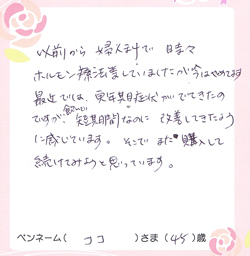 以前から婦人科で時々
ホルモン療法をしていましたが今はやめてます
最近では、更年期の症状がでてきたの
ですが、飲んで短期間なのに改善してきたよう
に感じています。そこでまた購入して
続けてみようと思っています。
ペンネーム( ココ )さま(45)歳